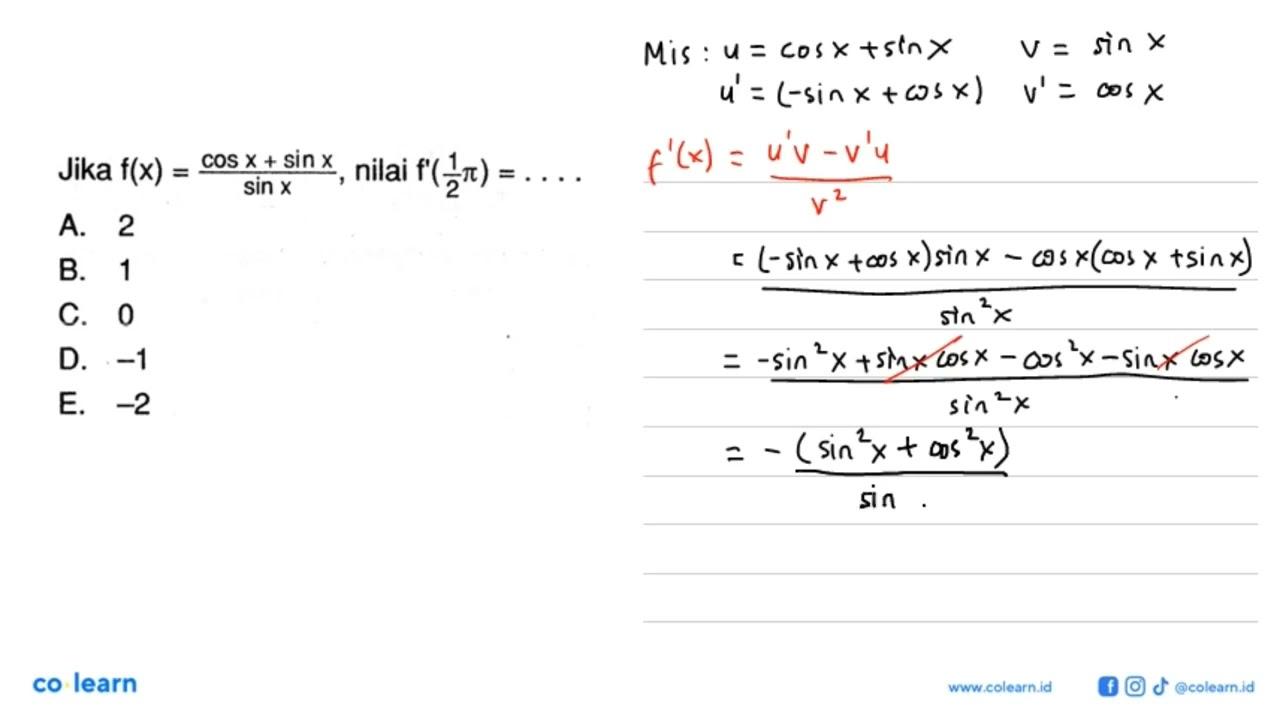 Jika f(x) = (cos x + sin x)/(sin x), nilai f'(1/2 π) = . . . .
A. 2
B. 1
C. 0
D. –1
E. –2
Mis : u = cos x + sin x   v = sin x
u' = (-sin x + cos x)   v' = cos x
f'(x) = (u'v - v'u)/(v²)
= ((-sin x + cos x) sin x - cos x (cos x + sin x))/(sin² x)
= (-sin² x + sin x cos x - cos² x - sin x cos x)/(sin² x)
= -(sin² x + cos² x)/(sin .
co learn
www.colearn.id
@colearn.id